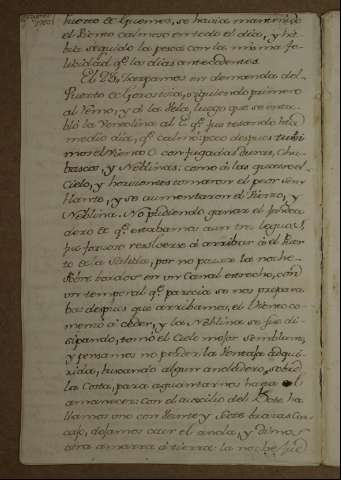 Puerto de Guemes, se havia mantenido
el Viento calmoso en todo el dia, y ha-
bia seguido la pesca con la misma fe-
licidad qe. los dias antecedentes.
El 26, zarpamos en demanda del
Puerto de siguiendo primero
al Remo, y á la Vela, luego que se enta-
bló la Ventolina al E. qe. fue refrescando hta.
medio dia, qe. calmó: poco despues tubi-
mos el Viento O. con fugadas duras, Chu-
bascos, y Neblinas: como á las quatro el
Cielo, y horizontes tomaron el peor sem-
blante, y se aumentaron el Viento, y
Neblina. No pudiendo ganar el fondea-
dero de qe. estabamos aun tres leguas,
fue forzoso resolverse á arribar á el Puer-
to de por no pasar la noche
sobre bordos en un Canal estrecho, con
un temporal qe. parecia se nos prepara-
ba: despues que arribamos, el Viento co-
menzó á ceder, y la Neblina se fue di-
sipando, tomó el Cielo mejor semblante,
y pensamos no perder la Ventaja adqui-
rida, buscando algun anoladero, sobre
la Costa, para aguantarnos hasta el
amanecer: con el auxilio del Bote ha-
llamos uno con veinte y siete brazas Cas-
cajo, dejamos caer el ancla, y dimos
otra amarra á tierra: la noche fue